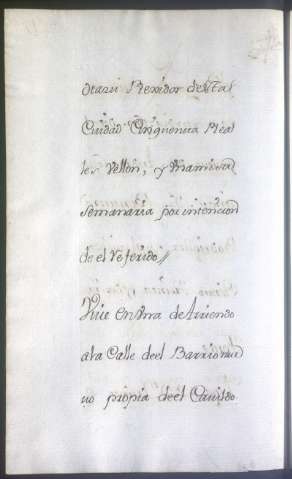 otazu Rexidor de esta
Ciudad Cinquenta Rea
les Vellon, y una misa
semanaria por intencion
de el referido
Vive en una de Arriendo
a la Calle de el Barrio nue
vo propia de el Cavildo